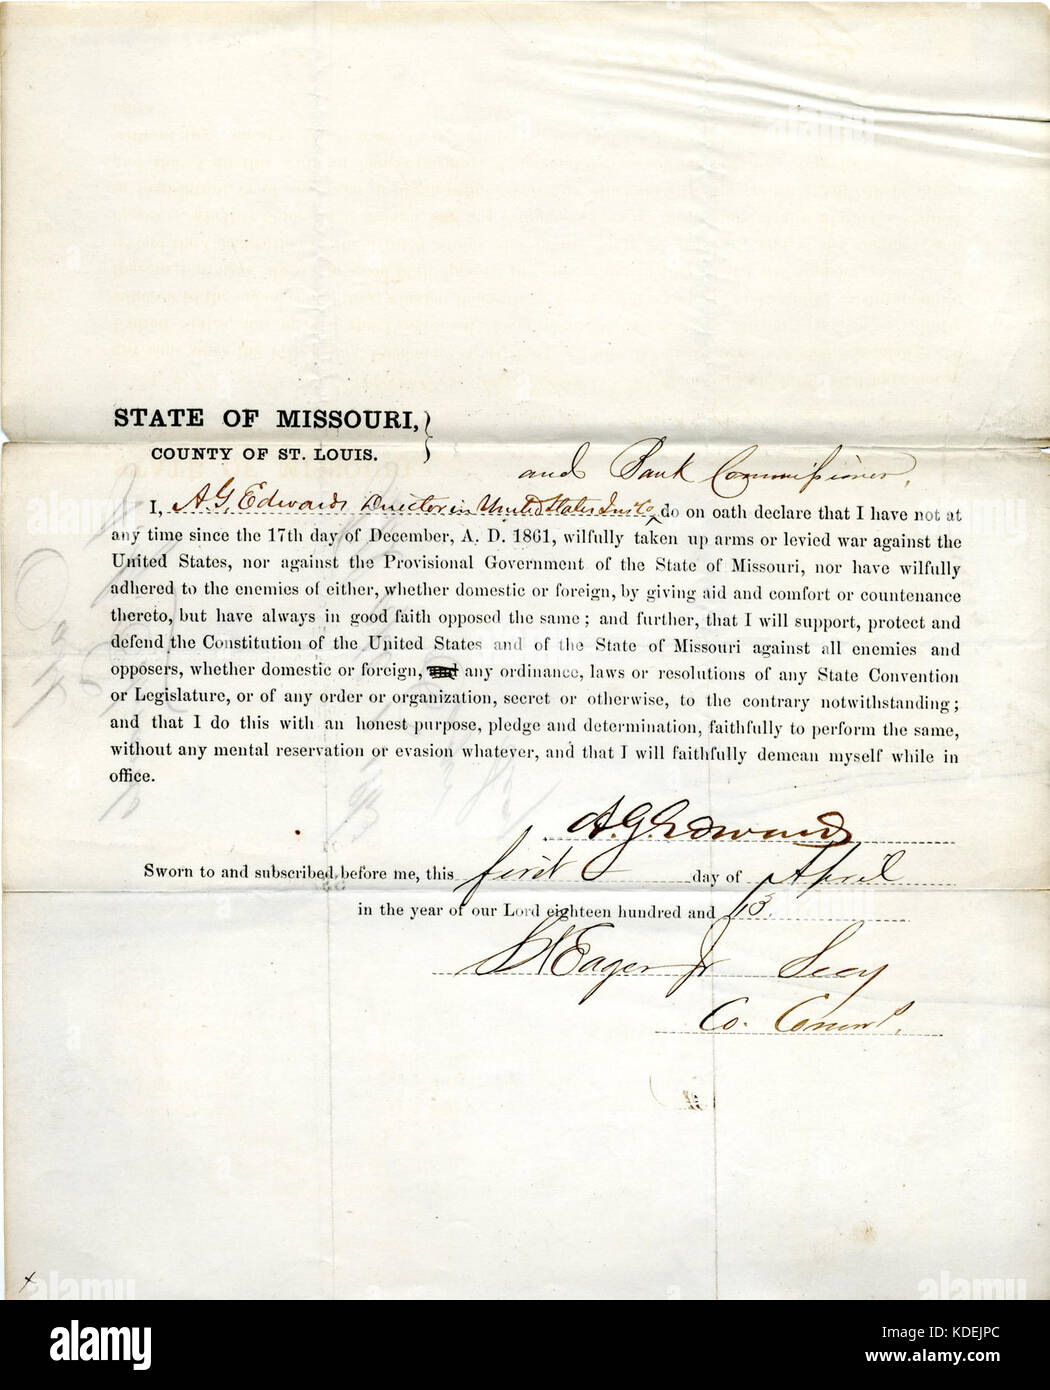 STATE OF MISSOURI,
COUNTY OF ST. LOUIS.
and Bank Commissioner,
I, A. G. Edwards Director in United States Ins Co ‸ do on oath declare that I have not at
any time since the 17th day of December, A. D. 1861, wilfully taken up arms or levied war against the
United States, nor against the Provisional Government of the State of Missouri, nor have wilfully
adhered to the enemies of either, whether domestic or foreign, by giving aid and comfort or countenance
thereto, but have always in good faith opposed the same; and further, that I will support, protect and
defend the Constitution of the United States and of the State of Missouri against all enemies and
opposers, whether domestic or foreign, any ordinance, laws or resolutions of any State Convention
or Legislature, or of any order or organization, secret or otherwise, to the contrary notwithstanding;
and that I do this with an honest purpose, pledge and determination, faithfully to perform the same,
without any mental reservation or evasion whatever, and that I will faithfully demean myself while in
office.
A. G. Edwards
Sworn to and subscribed before me, this first day of April
in the year of our Lord eighteen hundred and 63.
Eager Jr Secy
Co. Comrs.
alamy
Image ID: KDEJPC
www.alamy.com